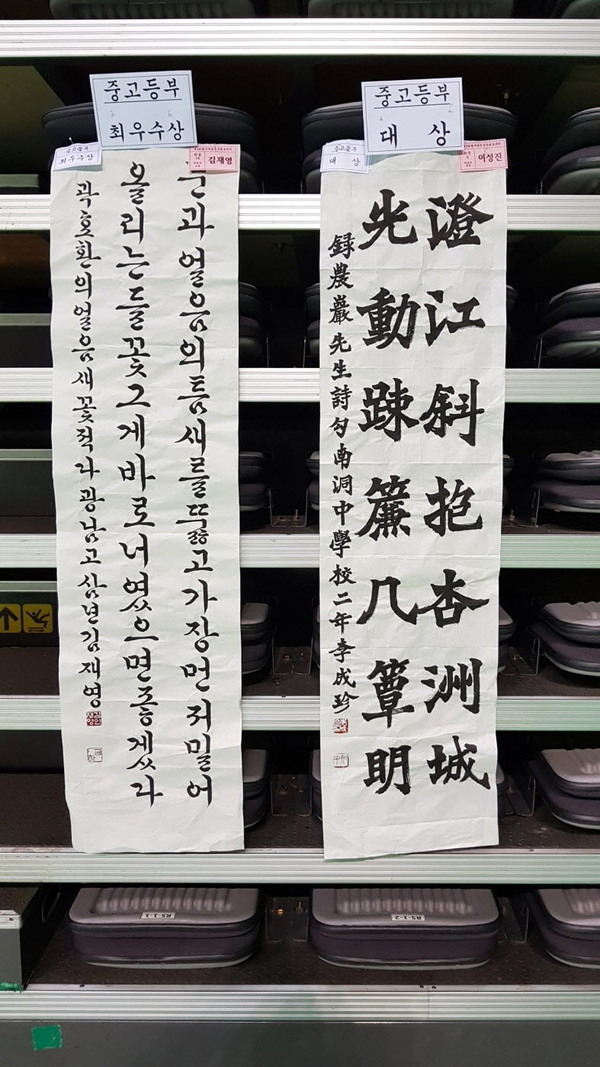 중고등부
최우수상
중고등부
최우수상
김재영
눈과얼음의틈새를뚫고가장먼저밀어
올리는들꽃그게바로너였으면좋겠다
곽효환의얼음새꽃적다광남고삼년김재영
중고등부
대 상
중고등부
대 상
이성진
澄江斜抱杏洲城
光動踈簾几簟明
録農巖先生詩句南洞中學校二年李成珍
RS-1-1
RS-1-2